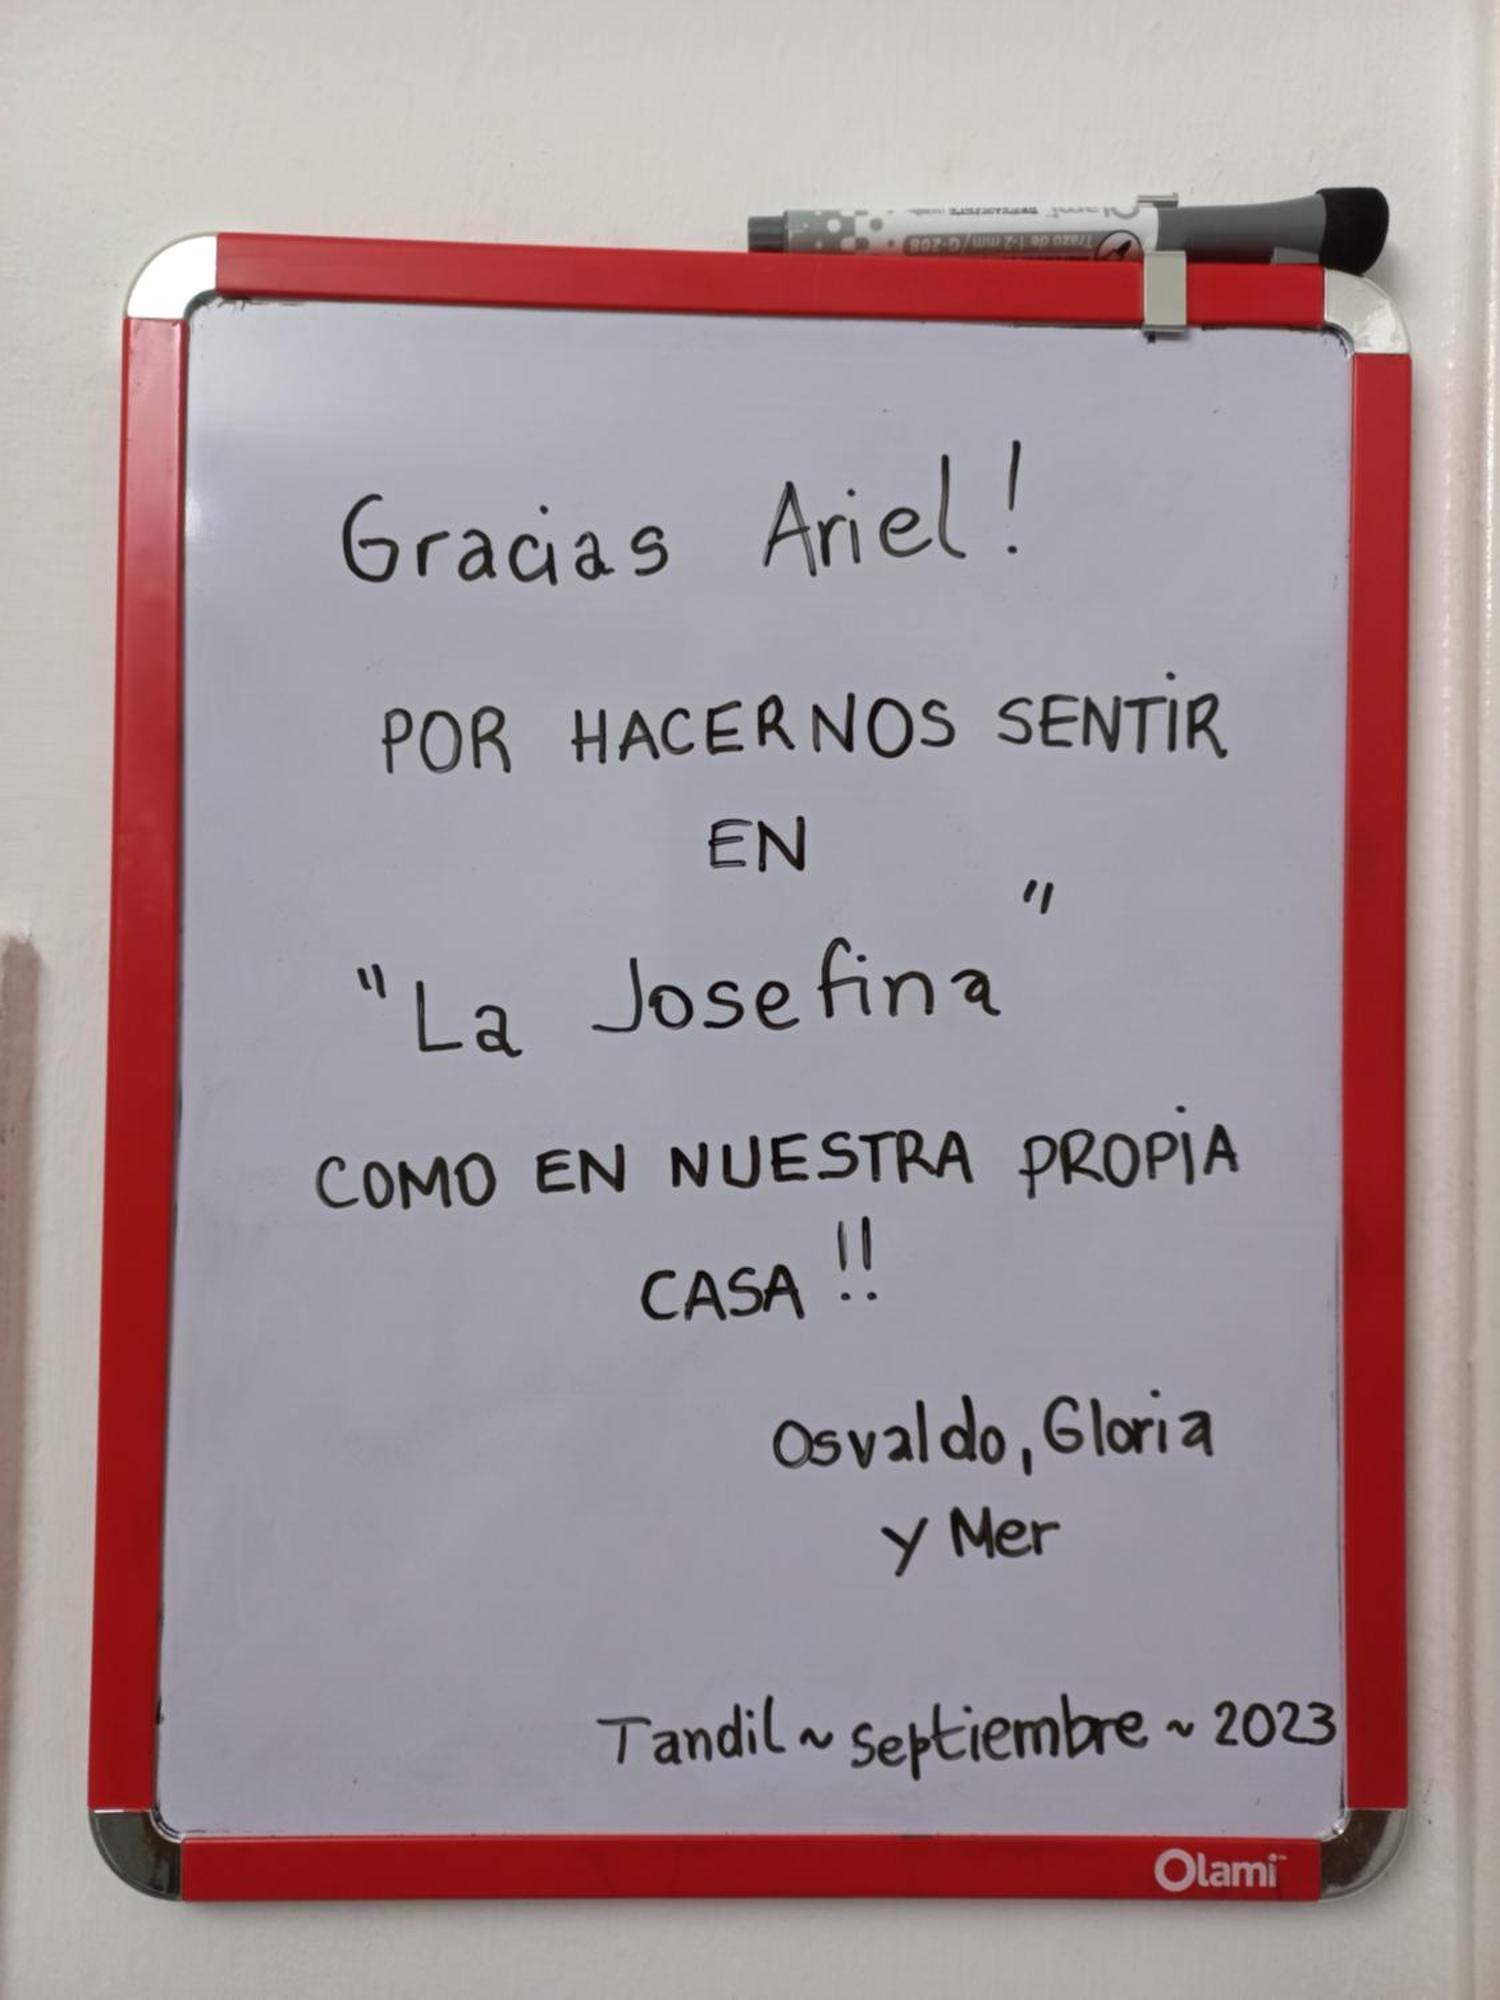 Olami
Trazo de 1-2 mm/G-208
Gracias Ariel!
POR HACERNOS SENTIR
EN
"La Josefina"
COMO EN NUESTRA PROPIA
CASA!!
Osvaldo, Gloria
y Mer
Tandil ~ septiembre ~ 2023
Olami